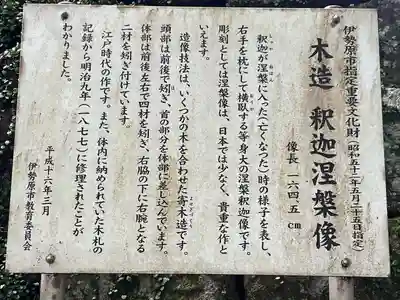 伊勢原市指定重要文化財(昭和五十二年五月二十五日指定)
木造 釈迦涅槃像
像長 一六四.五cm
釈迦が涅槃に入った(亡くなった)時の様子を表し、
右手を枕にして横臥する等身大の涅槃釈迦像です。
彫刻としては涅槃像は、日本では少なく、貴重な作と
いえます。
造像技法は、いくつかの木を合わせた寄木造です。
頭部は前後で矧ぎ、首の部分を体部に差し込んでいます。
体部は前後左右で四材を矧ぎ、右脇の下に右腕となる
二材を矧ぎ付けています。
江戸時代の作です。また、体内に納められていた木札の
記録から明治九年(一八七七)に修理されたことが
わかりました。
平成十六年三月
伊勢原市教育委員会